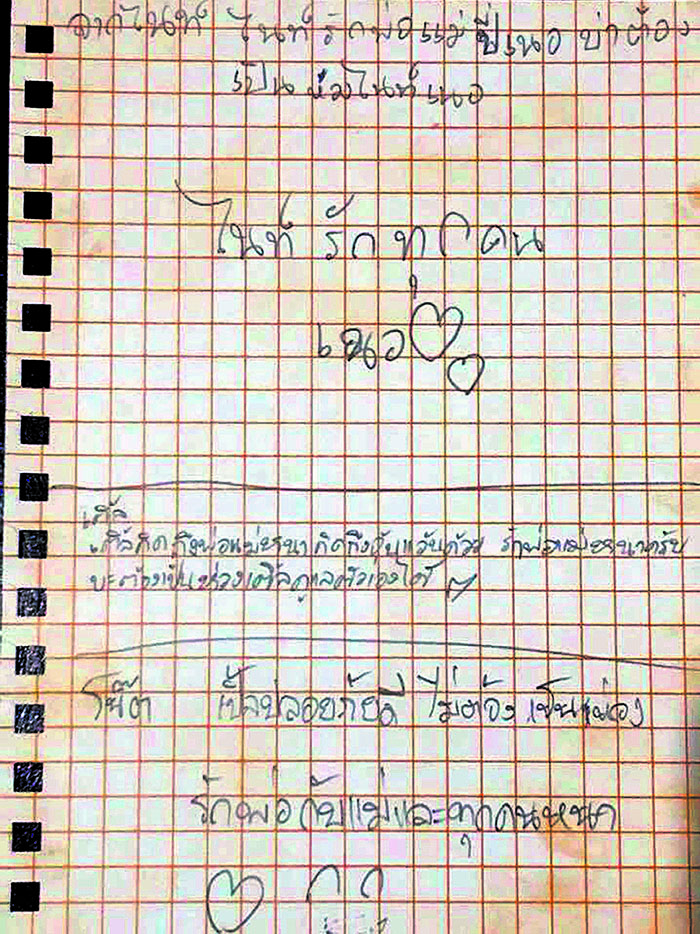 จากไนท์ ไนท์รักพ่อแม่ปี่เนอ บ่าต้อง
เป็นห่วงไนท์เนอ
ไนท์ รักทุกคน
เนอ
เติ้ล
เติ้ลคิดถึงพ่อแม่หนา คิดถึง ด้วย รักพ่อแม่หนาครับ
บะต้องเป็นห่วงเติ้ลดูแลตัวเองได้
โน๊ต เป็นปลอยภัยดี ไม่ต้องเป็นห่วง
รักพ่อกับแม่และทุกคนหนา